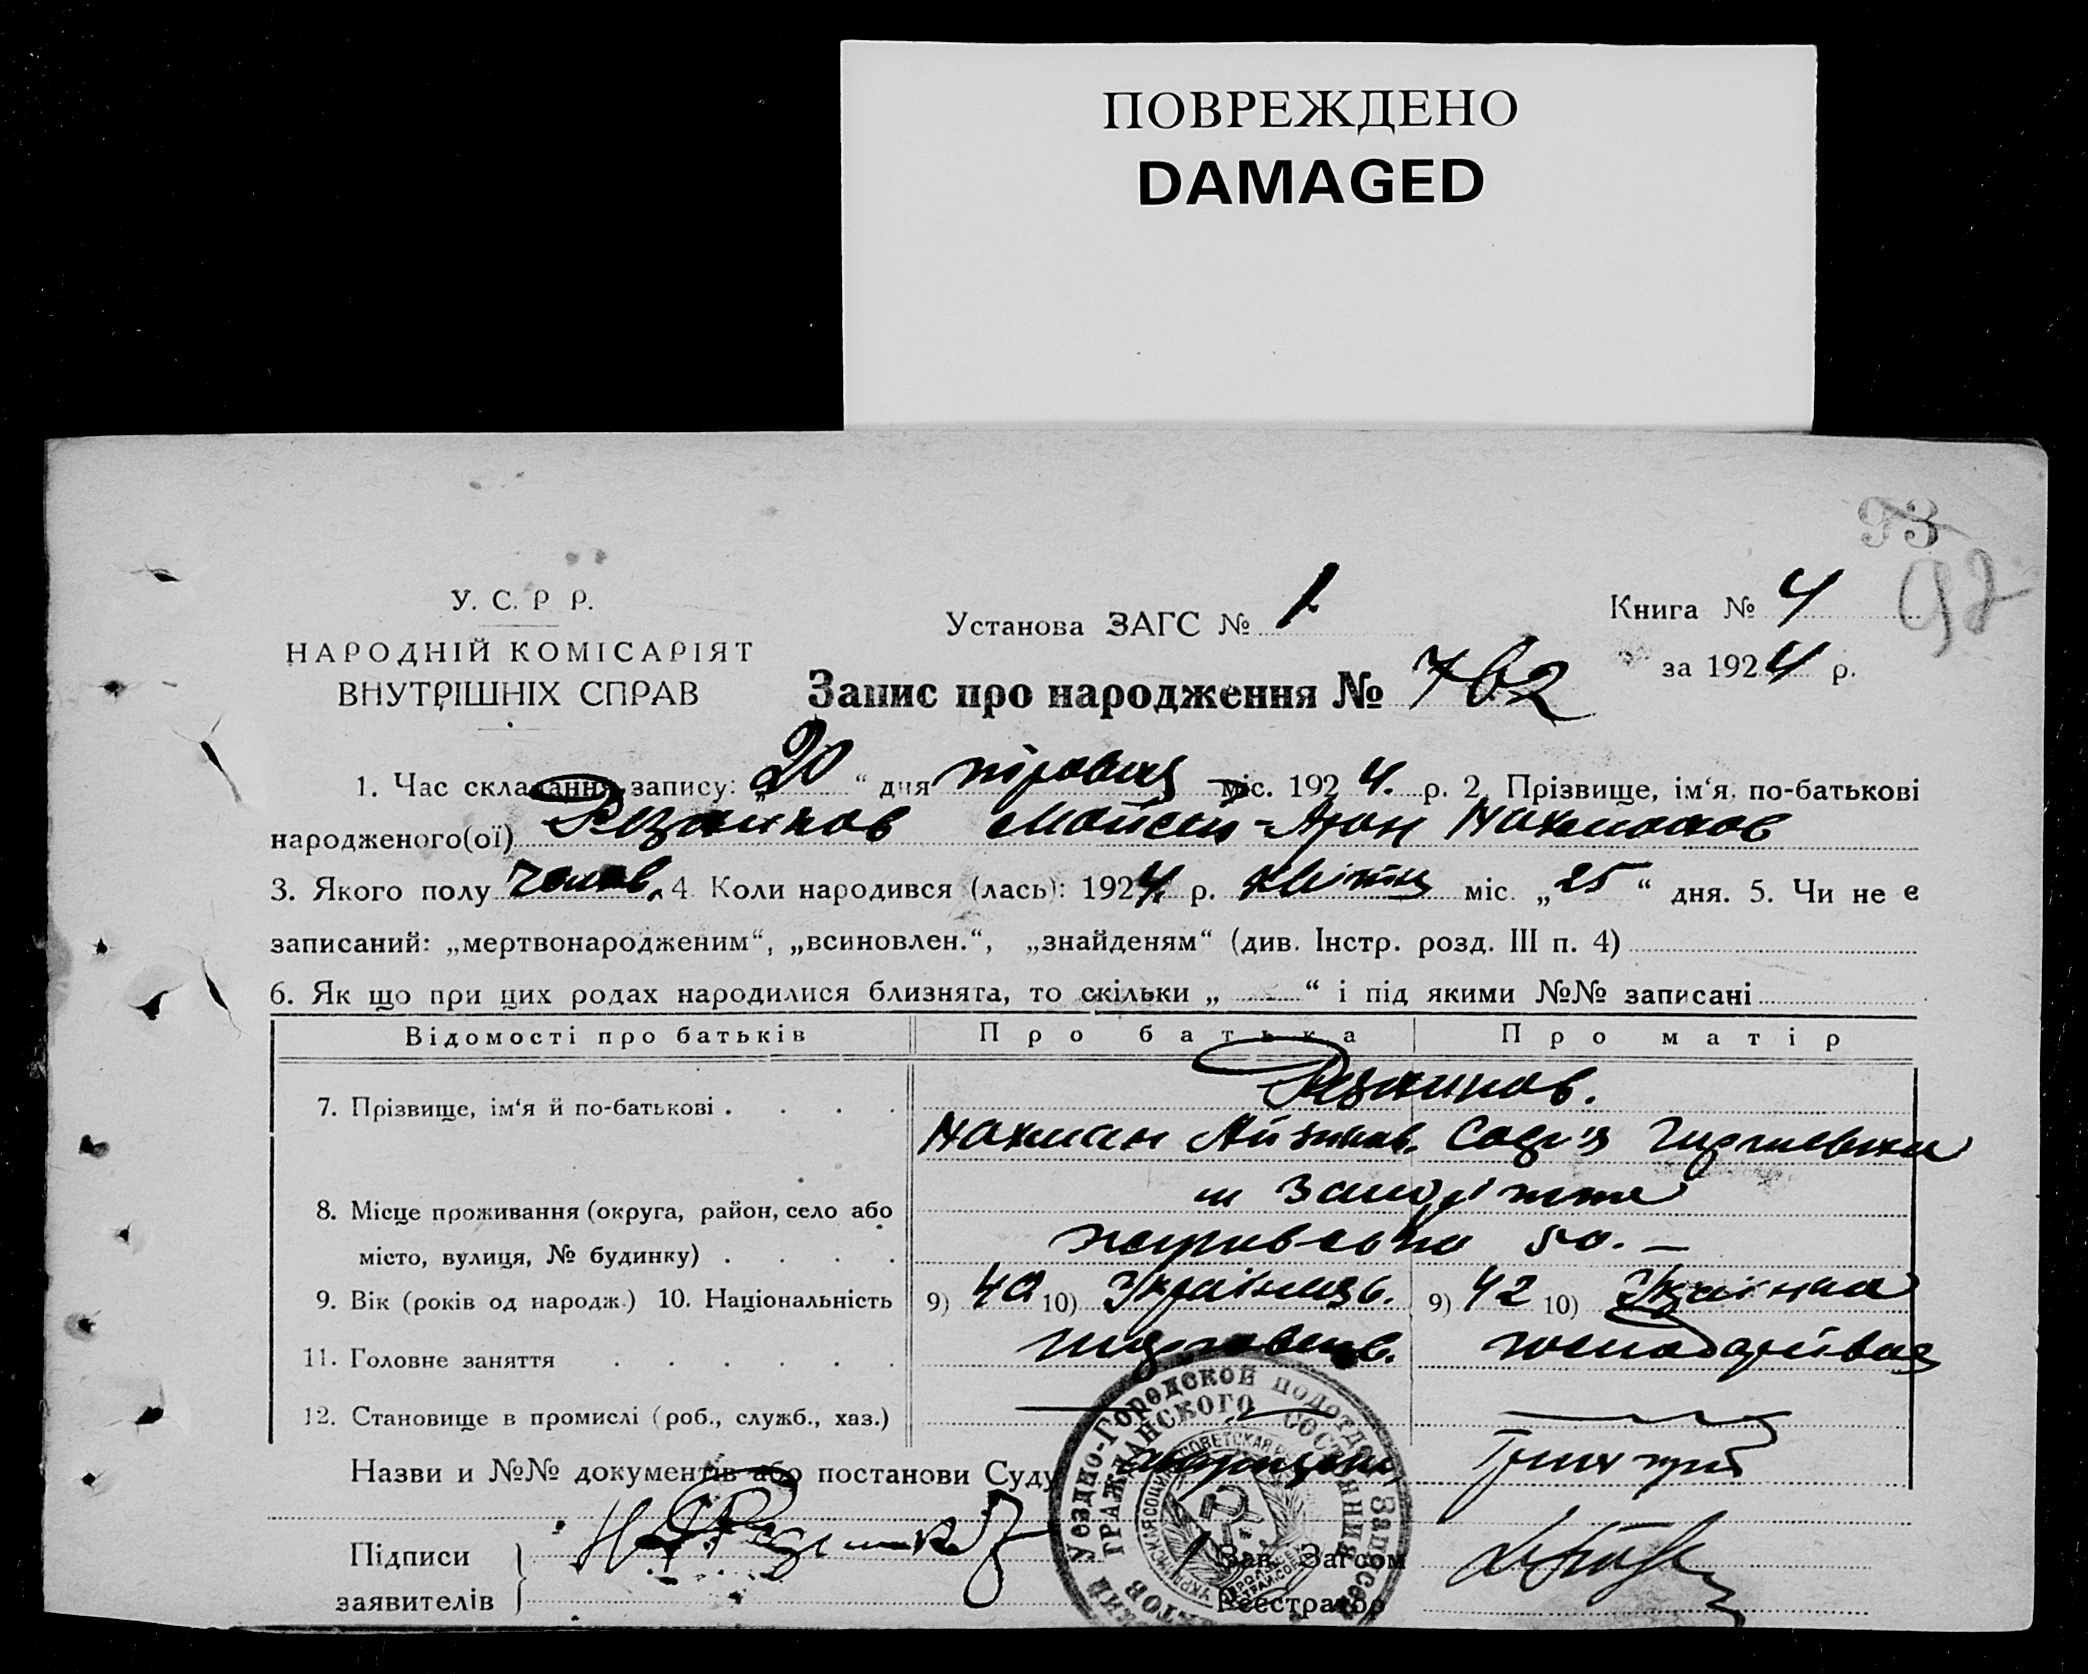 ПОВРЕЖДЕНО
DAMAGED
93
92
У. С. Р Р.
НАРОДНІЙ КОМІСАРІЯТ
ВНУТРІШНІХ СПРАВ
Установа ЗАГС № 1
Книга № 4
за 1924 р.
Запис про народження № 762
1. Час складання запису: „20“ дня міс. 1924. р. 2. Прізвище, ім‘я, по-батькові
народженого(ої) Резников Мойсей-Арон Нахманов
3. Якого полу чолов. 4. Коли народився (лась): 1924 р. квітня міс. „25“ дня. 5. Чи не є
записаний: „мертвонародженим“, „всиновлен.“, „знайденям“ (див. Інстр. розд. III п. 4)
6. Як що при цих родах народилися близнята, то скільки „ “ і під якими №№ записані
Відомості про батьків Про батька Про матір
7. Прізвище, ім‘я й по-батькові . . . . Резников.
Нахман Айзиков. Софія
8. Місце проживання (округа, район, село або м Запоріжжя
місто, вулиця, № будинку) . . . . 50. —
9. Вік (років од народж.) 10. Національність 9) 40 10) Українець. 9) 42 10) Українка
11. Головне заняття . . . . . .
12. Становище в промислі (роб., служб., хаз.)
Назви и №№ документів або постанови Суду
Підписи
заявителів
Зав. Загсом
Реєстратор
Уездно-Городской подотдел Записей
ГРАЖДАНСКОГО СОСТОЯНИЯ